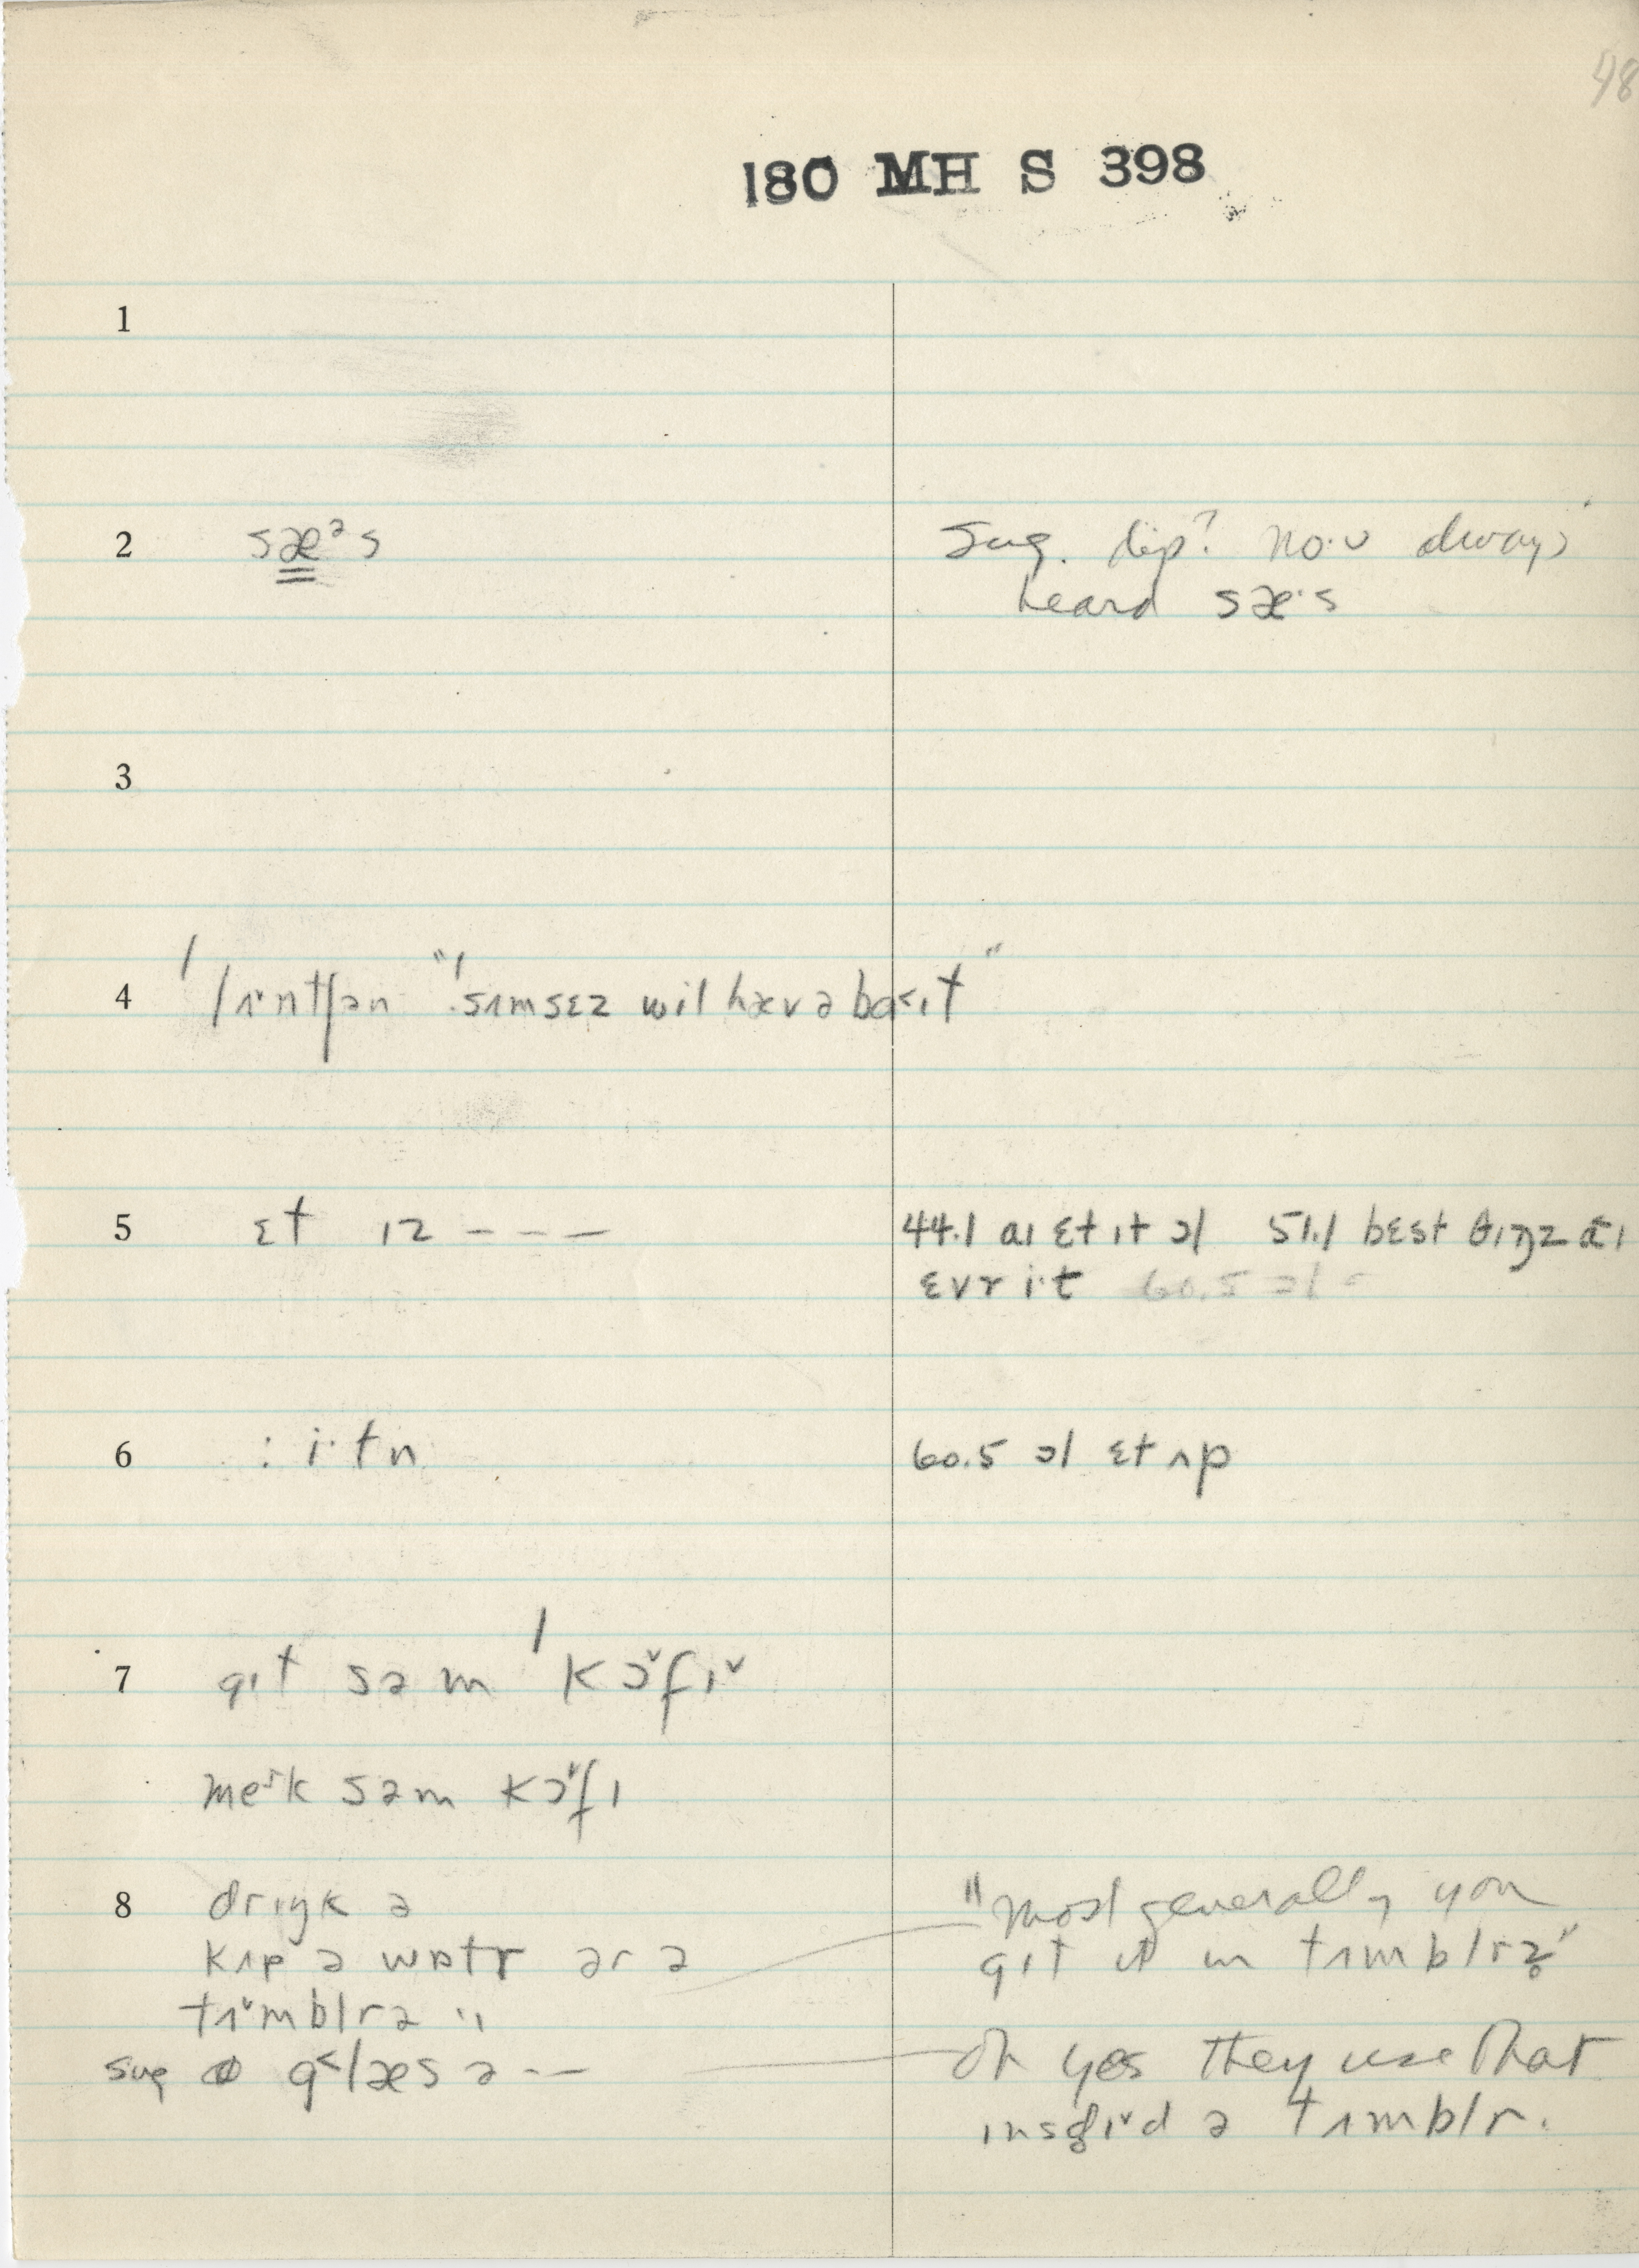 48
180 MH S 398
1
2 sæᵊs
Sug. dip? no·ʊ always
heard sæ·s
3
4 ˈlʌ·ntʃən "ˈsʌmsɛz wɪl hæv ə ba˂ɪt"
5 ɛt ɪz – – –
44.1 aɪ ɛt ɪt ɔl 51.1 bɛst θɪŋz ãɪ
ɛvr i·t 60.5 ɔl
6 : i·tn
60.5 ɔl ɛt ʌp
7 gɪt səm ˈkɔˇfɪˇ
meɪk səm kɔˇfɪ
8 drɪŋk ə
kʌp ə wɒtr ər ə
tʌˇmblr ə "
sug glæs ə – –
"most generally you
gɪt it in tʌmblrz"
oh yes they use that
ɪnstɪˇd ə tʌmblr.